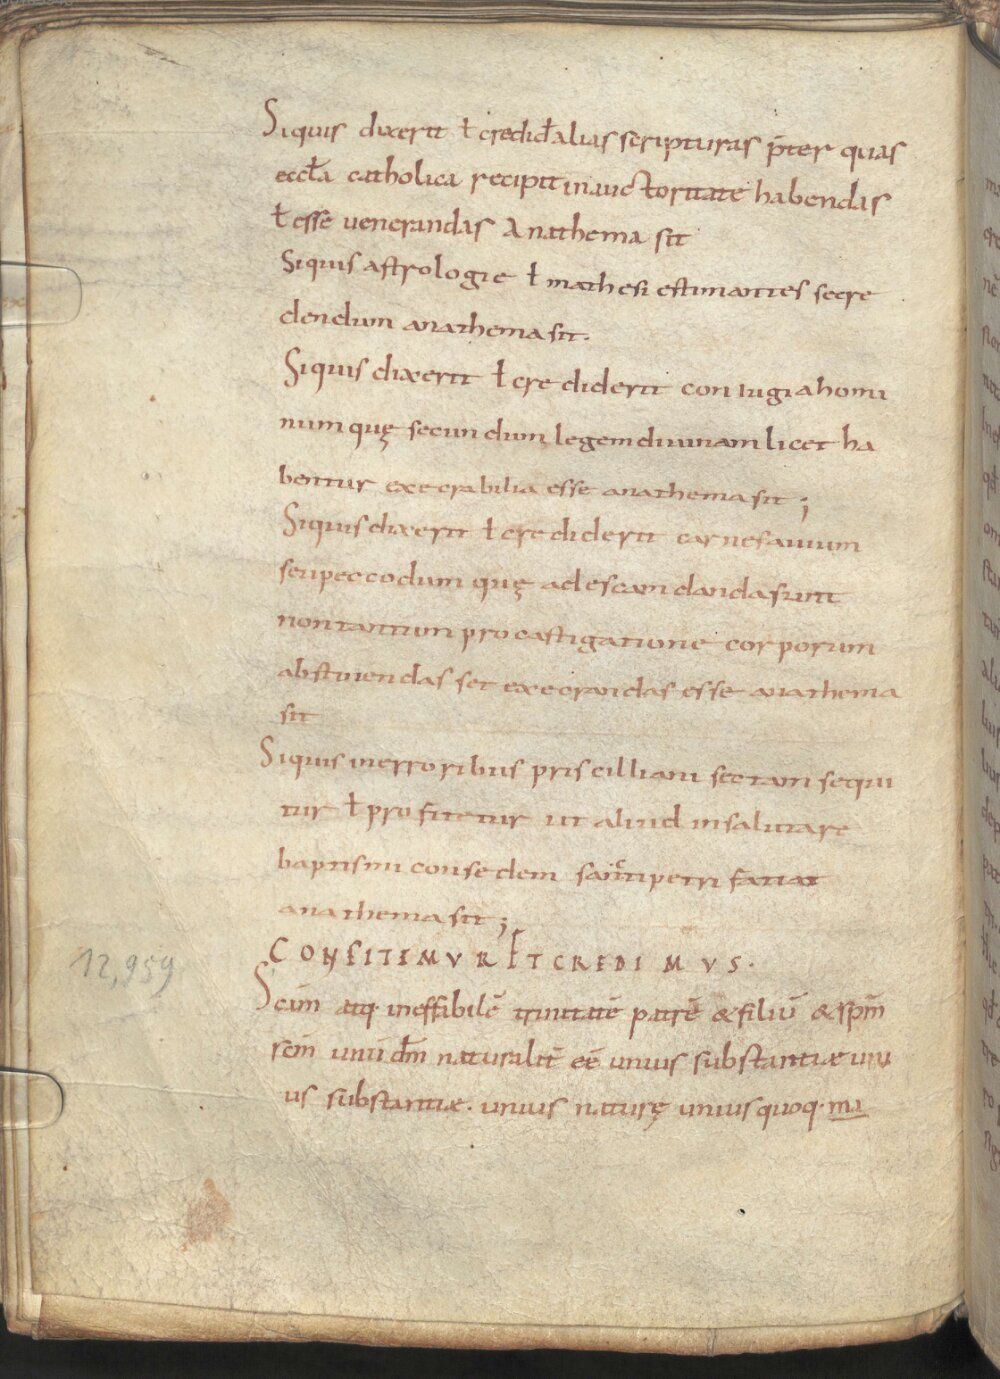 Siquis dixerit ł credid̄ alias scripturas p̄ter quas
eccl̄a catholica recipit in auctoritate habendas
ł esse venerandas Anathema sit
Siquis astrologie ł mathesi estimanties secre
dendum anathema sit.
Siquis dixerit ł crediderit coniugia homi
num quę secundum legem diuinam licet ha
bentur execrabilia esse anathema sit ;
Siquis dixerit ł crediderit carnes auium
seu peccodum quę ad escam danda sunt
non tantum pro castigatione corporum
abstinendas set execrandas esse anathema
sit
Siquis in erroribus priscilliani sectam sequi
tur ł profitetur ut aliud in salutare
baptismi con sedem sancti petri faciat
anathema sit ;
CONFITEMUR ET CREDIMUS.
Scām atq. ineffibilē trinitatē patrē & filiū & sp̄m
sc̄m unū d̄m naturalit̄ eē unius substantiae uni
us substantiae. unius naturę unius quoq. ma
12,959